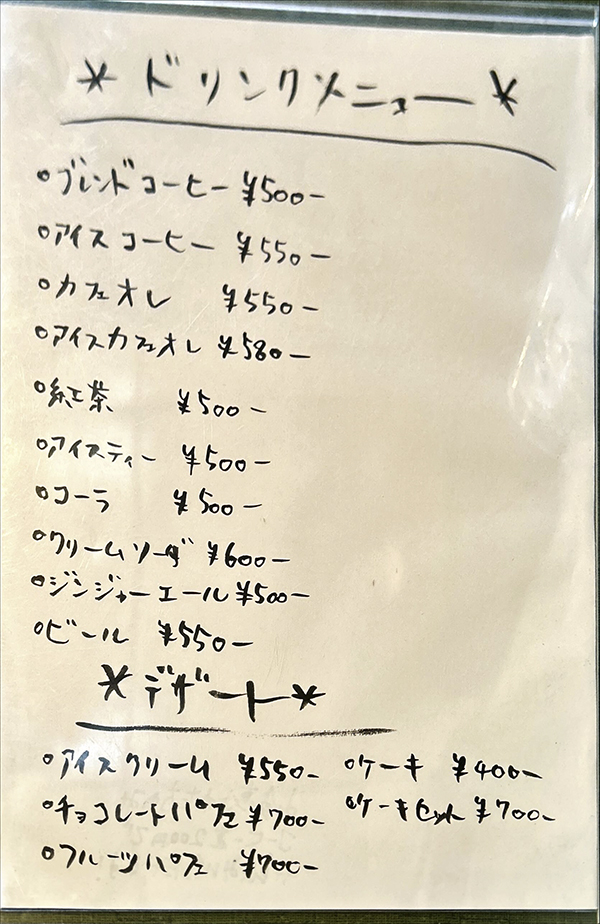 * ドリンクメニュー *
○ブレンドコーヒー ¥500-
○アイスコーヒー ¥550-
○カフェオレ ¥550-
○アイスカフェオレ ¥580-
○紅茶 ¥500-
○アイスティー ¥500-
○コーラ ¥500-
○クリームソーダ ¥600-
○ジンジャーエール ¥500-
○ビール ¥550-
* デザート *
○アイスクリーム ¥550-
○チョコレートパフェ ¥700-
○フルーツパフェ ¥700-
○ケーキ ¥400-
○ケーキセット ¥700-